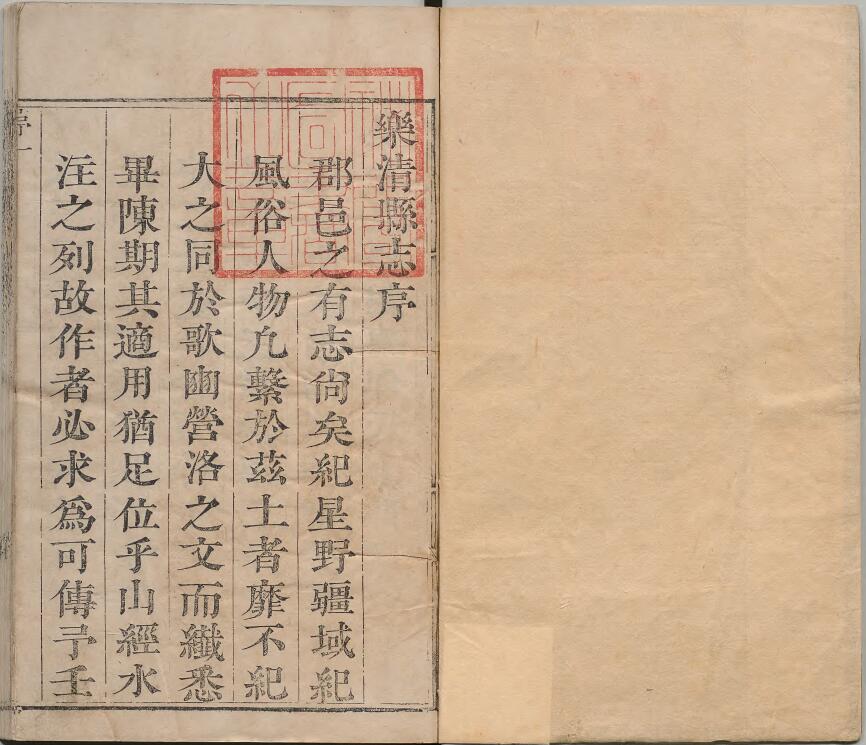 樂清縣志序
郡邑之有志尙矣紀星野疆域紀
風俗人物凡繫於茲土者靡不紀
大之同於歌豳營洛之文而纖悉
畢陳期其適用猶足位乎山經水
注之列故作者必求爲可傳予壬
序一